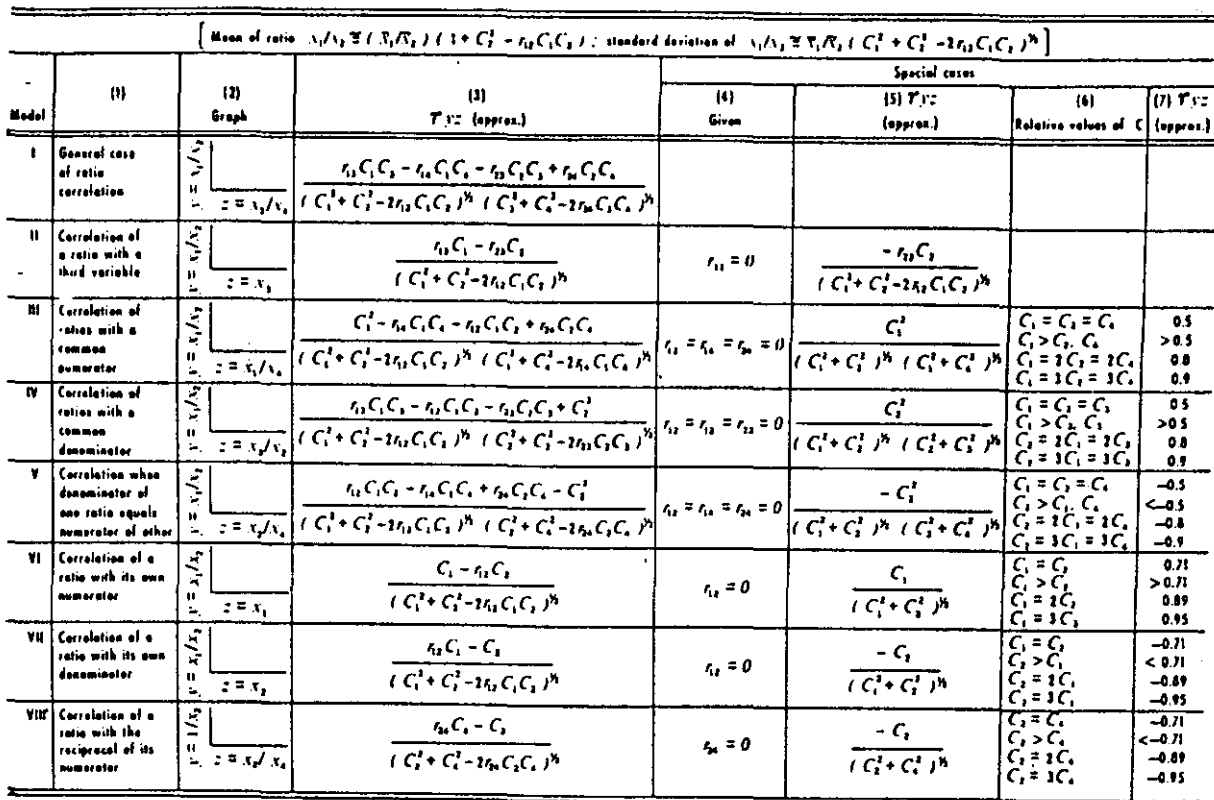 [ Mean of ratio x₁/x₂ ≅ ( x̄₁/x̄₂ ) ( 1 + C₂² − r₁₂C₁C₂ ) ; standard deviation of x₁/x₂ ≅ x̄₁/x̄₂ ( C₁² + C₂² −2r₁₂C₁C₂ )^½ ]
Special cases
Model (1) (2) Graph (3) r yz (approx.) (4) Given (5) r yz (approx.) (6) Relative values of C (7) r yz (approx.)
I General case of ratio correlation y = x₁/x₂ z = x₃/x₄ r₁₃C₁C₃ − r₁₄C₁C₄ − r₂₃C₂C₃ + r₂₄C₂C₄
( C₁² + C₂² −2r₁₂C₁C₂ )^½ ( C₃² + C₄² −2r₃₄C₃C₄ )^½
II Correlation of a ratio with a third variable y = x₁/x₂ z = x₃ r₁₃C₁ − r₂₃C₂ r₁₃ = 0 − r₂₃C₂
( C₁² + C₂² −2r₁₂C₁C₂ )^½ ( C₁² + C₂² −2r₁₂C₁C₂ )^½
III Correlation of ratios with a common numerator y = x₁/x₂ z = x₁/x₄ C₁² − r₁₄C₁C₄ − r₁₂C₁C₂ + r₂₄C₂C₄ r₁₂ = r₁₄ = r₂₄ = 0 C₁²
( C₁² + C₂² −2r₁₂C₁C₂ )^½ ( C₁² + C₄² −2r₁₄C₁C₄ )^½ ( C₁² + C₂² )^½ ( C₁² + C₄² )^½
C₁ = C₂ = C₄ 0.5
C₁ > C₂, C₄ >0.5
C₁ = 2C₂ = 2C₄ 0.8
C₁ = 3C₂ = 3C₄ 0.9
IV Correlation of ratios with a common denominator y = x₁/x₂ z = x₃/x₂ r₁₃C₁C₃ − r₁₂C₁C₂ − r₂₃C₂C₃ + C₂² r₁₂ = r₁₃ = r₂₃ = 0 C₂²
( C₁² + C₂² −2r₁₂C₁C₂ )^½ ( C₂² + C₃² −2r₂₃C₂C₃ )^½ ( C₁² + C₂² )^½ ( C₂² + C₃² )^½
C₁ = C₂ = C₃ 0.5
C₂ > C₁, C₃ >0.5
C₂ = 2C₁ = 2C₃ 0.8
C₂ = 3C₁ = 3C₃ 0.9
V Correlation when denominator of one ratio equals numerator of other y = x₁/x₂ z = x₂/x₄ r₁₂C₁C₂ − r₁₄C₁C₄ + r₂₄C₂C₄ − C₂² r₁₂ = r₁₄ = r₂₄ = 0 − C₂²
( C₁² + C₂² −2r₁₂C₁C₂ )^½ ( C₂² + C₄² −2r₂₄C₂C₄ )^½ ( C₁² + C₂² )^½ ( C₂² + C₄² )^½
C₁ = C₂ = C₄ −0.5
C₂ > C₁, C₄ <−0.5
C₂ = 2C₁ = 2C₄ −0.8
C₂ = 3C₁ = 3C₄ −0.9
VI Correlation of a ratio with its own numerator y = x₁/x₂ z = x₁ C₁ − r₁₂C₂ r₁₂ = 0 C₁
( C₁² + C₂² −2r₁₂C₁C₂ )^½ ( C₁² + C₂² )^½
C₁ = C₂ 0.71
C₁ > C₂ > 0.71
C₁ = 2C₂ 0.89
C₁ = 3C₂ 0.95
VII Correlation of a ratio with its own denominator y = x₁/x₂ z = x₂ r₁₂C₁ − C₂ r₁₂ = 0 − C₂
( C₁² + C₂² −2r₁₂C₁C₂ )^½ ( C₁² + C₂² )^½
C₁ = C₂ −0.71
C₂ > C₁ < 0.71
C₂ = 2C₁ −0.89
C₂ = 3C₁ −0.95
VIII Correlation of a ratio with the reciprocal of its numerator y = 1/x₂ z = x₂/x₄ r₂₄C₄ − C₂ r₂₄ = 0 − C₂
( C₂² + C₄² −2r₂₄C₂C₄ )^½ ( C₂² + C₄² )^½
C₂ = C₄ −0.71
C₂ > C₄ <−0.71
C₂ = 2C₄ −0.89
C₂ = 3C₄ −0.95